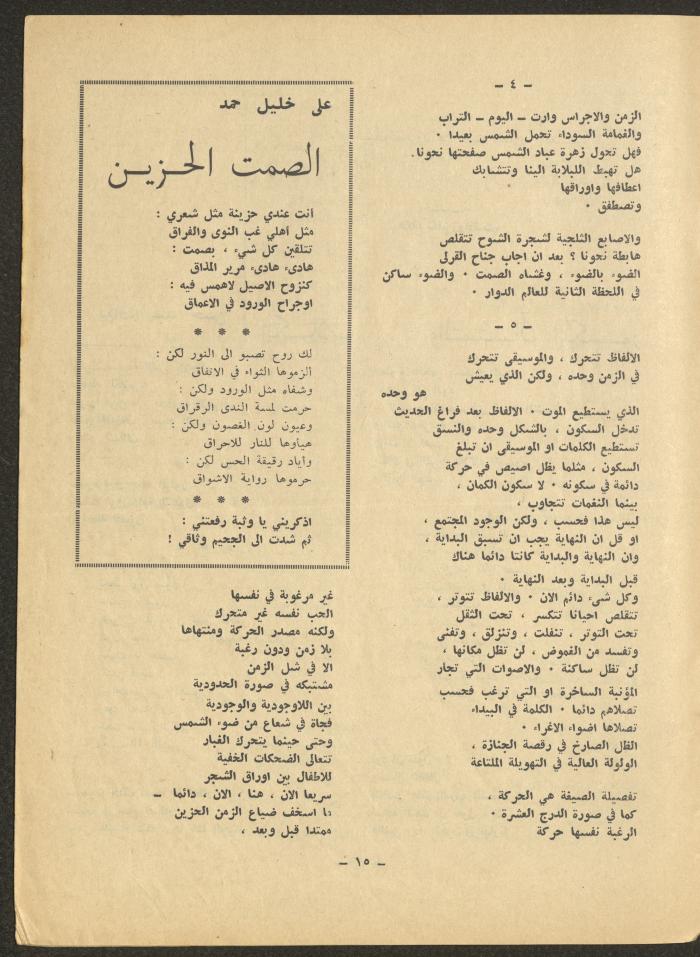 - ٤ -
الزمن والاجراس وارت ــ اليوم ــ التراب
والغمامة السوداء تحمل الشمس بعيدا ٠
فهل تحول زهرة عباد الشمس صفحتها نحونا.
هل تهبط اللبلابة الينا وتتشابك
اعطافها واوراقها
وتصطفق ٠
والاصابع الثلجية لشجرة الشوح تتقلص
هابطة نحونا ؟ بعد ان اجاب جناح القرلى
الضوء بالضوء ، وغشاه الصمت ٠ والضوء ساكن
في اللحظة الثانية للعالم الدوار ٠
- ٥ -
الالفاظ تتحرك ، والموسيقى تتحرك
في الزمن وحده ، ولكن الذي يعيش
هو وحده
الذي يستطيع الموت ٠ الالفاظ بعد فراغ الحديث
تدخل السكون ، بالشكل وحده والنسق
تستطيع الكلمات او الموسيقى ان تبلغ
السكون ، مثلما يظل اصيص في حركة
دائمة في سكونه ٠ لا سكون الكمان ،
بينما النغمات تتجاوب ،
ليس هذا فحسب ، ولكن الوجود المجتمع ،
او قل ان النهاية يجب ان تسبق البداية ،
وان النهاية والبداية كانتا دائما هناك
قبل البداية وبعد النهاية ٠
وكل شىء دائم الان ٠ والالفاظ تتوتر ،
تتقلص احيانا تتكسر ، تحت الثقل
تحت التوتر ، تنفلت ، وتنزلق ، وتفنى
وتفسد من الغموض ، لن تظل مكانها ،
لن تظل ساكنة ٠ والاصوات التي تجار
المؤنبة الساخرة او التي ترغب فحسب
تصلاهم دائما ٠ الكلمة في البيداء
تصلاها اضواء الاغراء ٠
الظل الصارخ في رقصة الجنازة ،
الولولة العالية في التهويلة الملتاعة
تفصيلة الصيغة هي الحركة ،
كما في صورة الدرج العشرة ٠
الرغبة نفسها حركة
على خليل حمد
الصمت الحزين
أنت عندي حزينة مثل شعري :
مثل أهلي غب النوى والفراق
تتلقين كل شيء ، بصمت :
هادىء هادىء مرير المذاق
كنزوح الاصيل لاهمس فيه :
اوجراح الورود في الاعماق
* * *
لك روح تصبو الى النور لكن :
ألزموها الثواء في الانفاق
وشفاه مثل الورود ولكن :
حرمت لمسة الندى الرقراق
وعيون لون الغصون ولكن :
هيأوها للنار للاحراق
وأياد رقيقة الحس لكن :
حرموها رواية الاشواق
* * *
اذكريني يا وثبة رفعتني :
ثم شدت الى الجحيم وثاقي !
غير مرغوبة في نفسها
الحب نفسه غير متحرك
ولكنه مصدر الحركة ومنتهاها
بلا زمن ودون رغبة
الا في شل الزمن
مشتبكه في صورة الحدودية
بين اللاوجودية والوجودية
فجأة في شعاع من ضوء الشمس
وحتى حينما يتحرك الغبار
تتعالى الضحكات الخفية
للاطفال بين اوراق الشجر
سريعا الان ، هنا ، الان ، دائما ــ
ما اسخف ضياع الزمن الحزين
ممتدا قبل وبعد ،
- ١٥ -